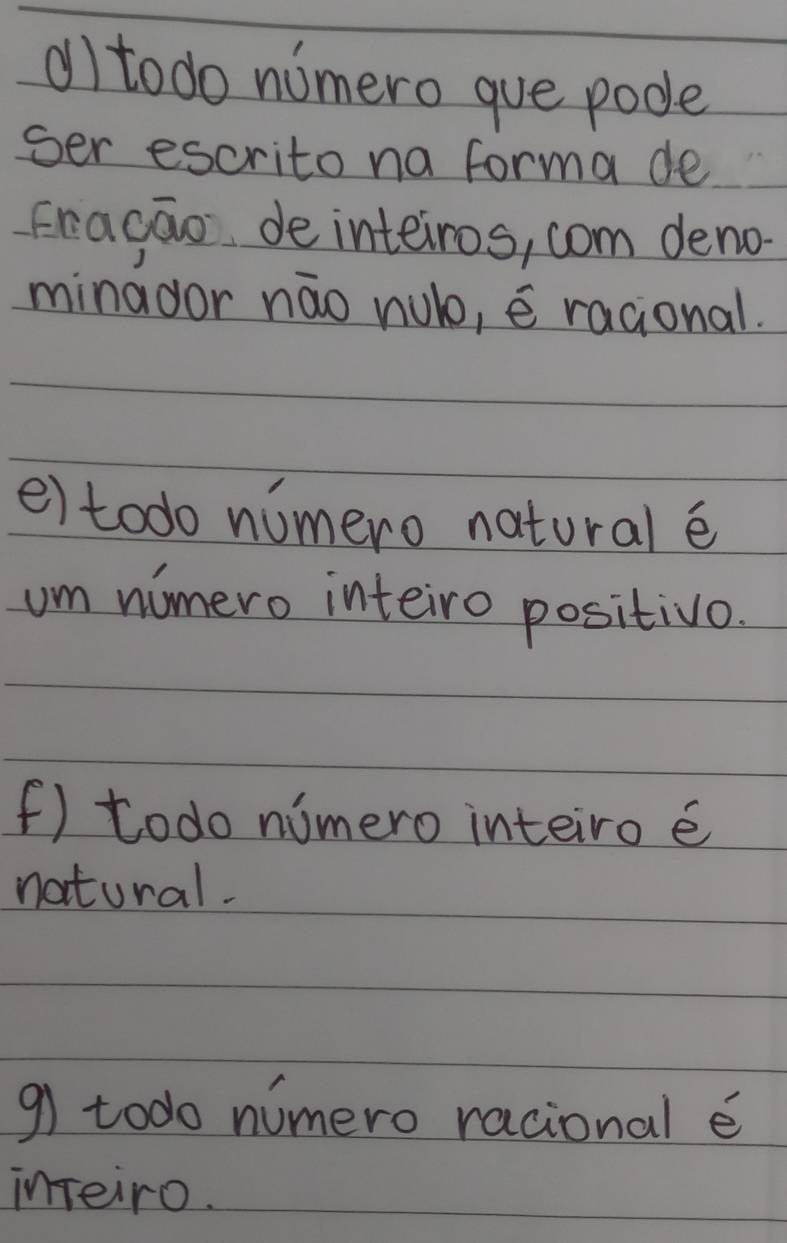 d) todo número que pode
ser escrito na forma de
fração de inteiros, com deno-
minador não nulo, é racional.
e) todo número natural é
um número inteiro positivo.
f) todo número inteiro é
natural.
g) todo número racional é
inteiro.